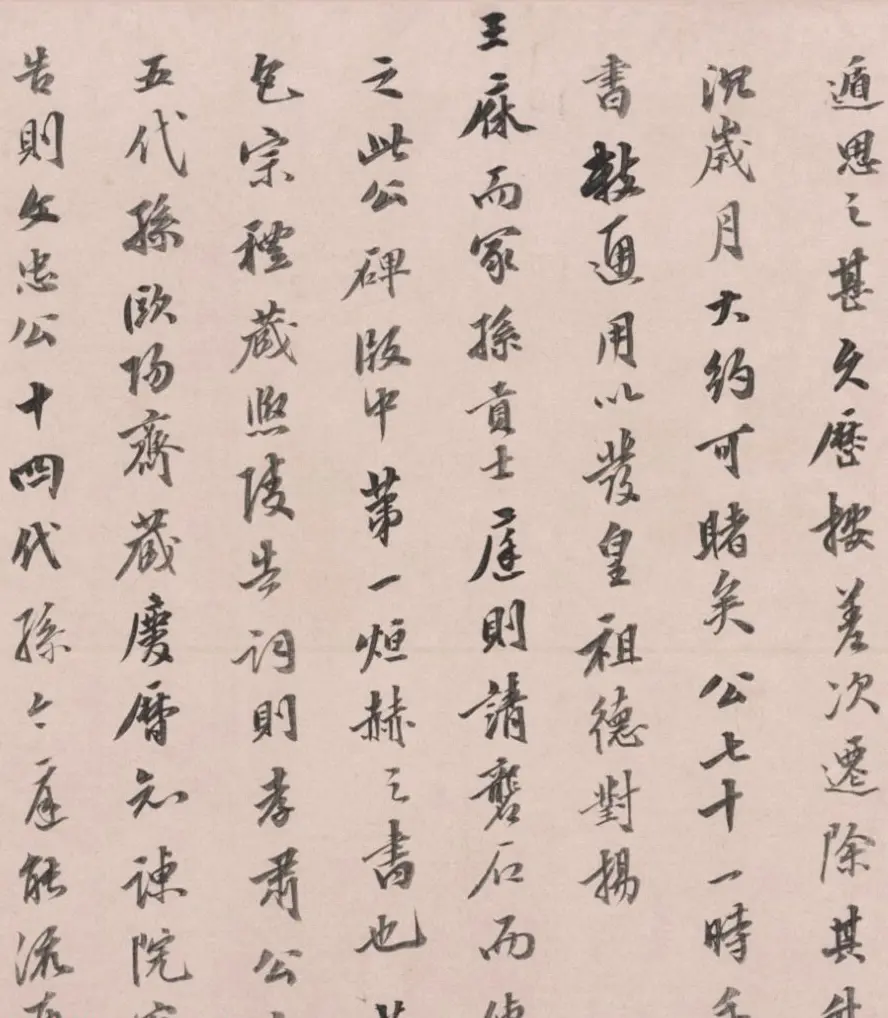 遁思之甚久歷按差次遷除其升
沉歲月大約可睹矣公七十一時手
書數通用以發皇祖德對揚
王庥而冢孫貢士庭則請礱石而使
之此公碑版中第一烜赫之書也
包宗禮藏熙陵告詞則孝肅公
五代孫歐陽齋藏慶曆知諫院
告則文忠公十四代孫今庭能添